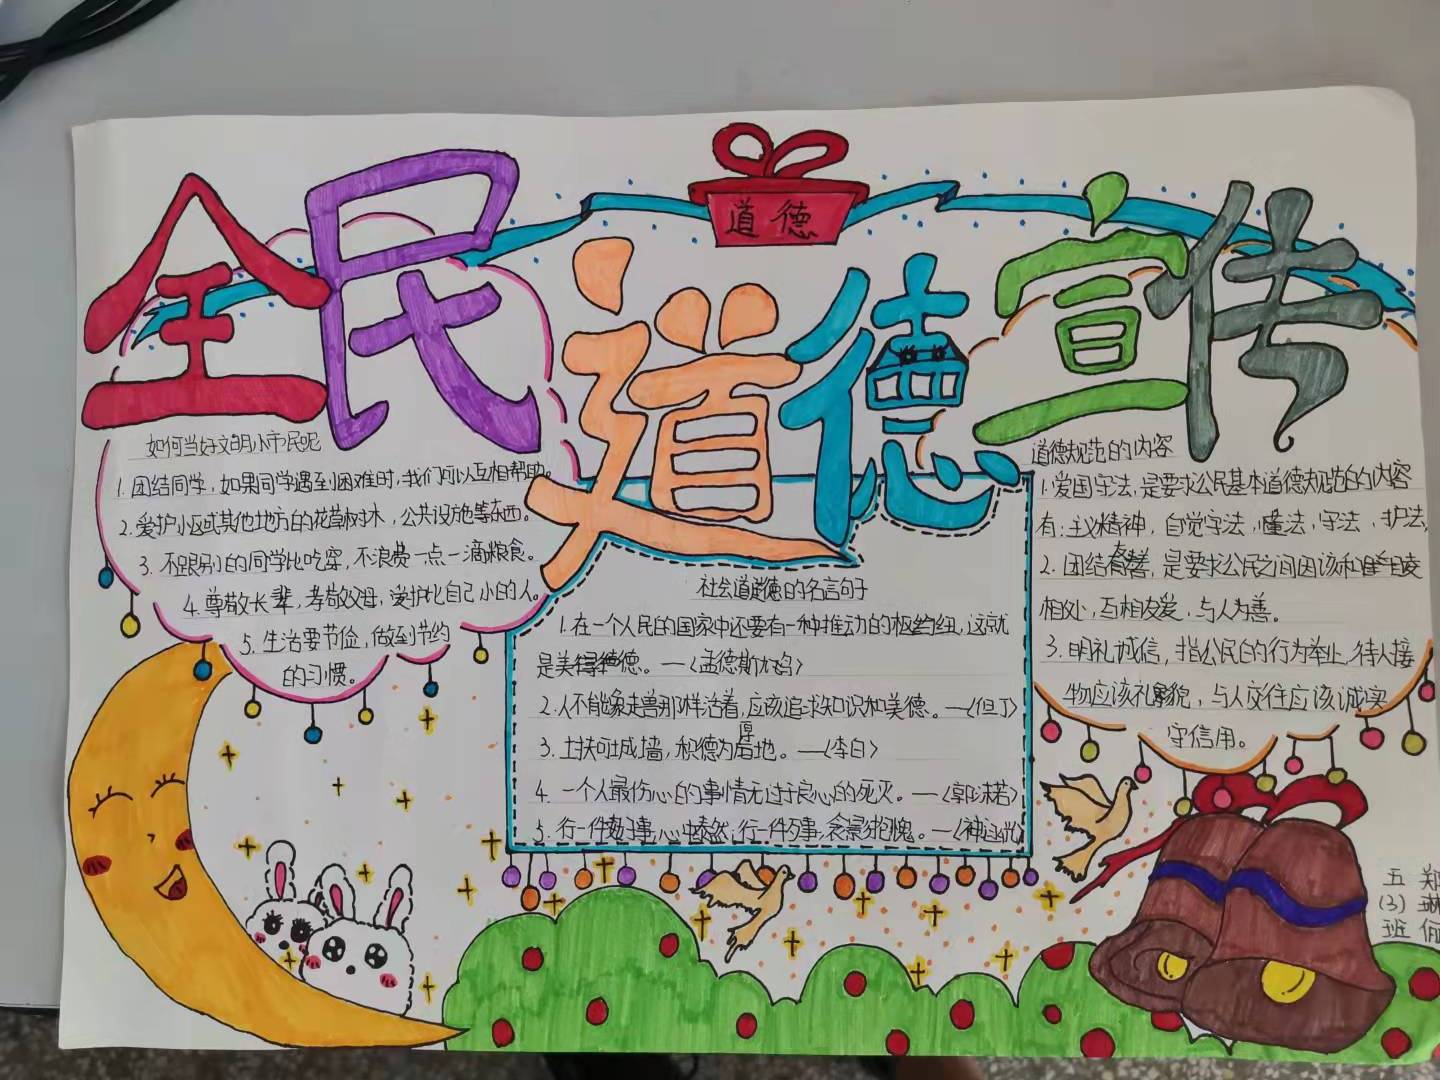 道德
全民道德宣传
如何当好文明小市民呢
1. 团结同学，如果同学遇到困难时，我们可以互相帮助。
2. 爱护小区或其他地方的花草树木，公共设施等东西。
3. 不跟别的同学比吃穿，不浪费一点一滴粮食。
4. 尊敬长辈，孝敬父母，爱护比自己小的人。
5. 生活要节俭，做到节约
的习惯。
社会道德的名言句子
1. 在一个人民的国家中还要有一种推动的枢纽，这就
是美德。—〈孟德斯鸠〉
2. 人不能像走兽那样活着，应该追求知识和美德。—〈但丁〉
3. 土扶可成墙，积德为厚地。—〈李白〉
4. 一个人最伤心的事情无过于良心的死灭。—〈郭沫若〉
5. 行一件好事，心中泰然；行一件歹事，抱愧。—〈神涵光〉
道德规范的内容
1. 爱国守法，是要求公民基本道德规范的内容
有：主义精神，自觉守法，懂法，守法，护法，
2. 团结友善，是要求公民之间因该和睦
相处，互相友爱，与人为善。
3. 明礼诚信，指公民的行为举止，待人接
物应该礼貌，与人交往应该诚实
守信用。
五 郑
(3) 琳
班